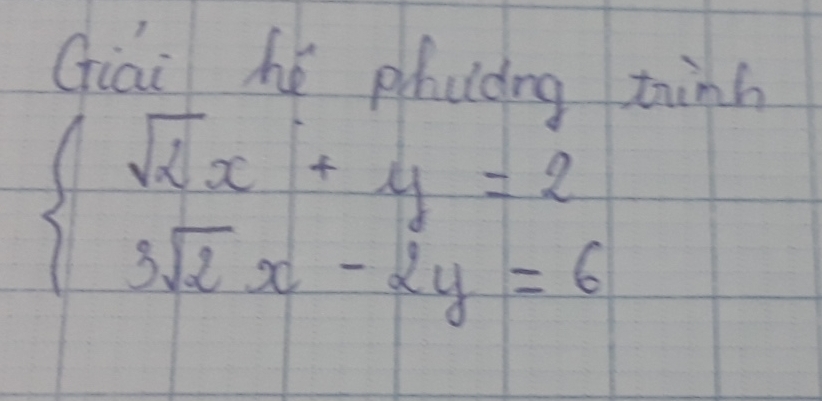 Giải hệ phương trình
√2x + y = 2
3√2x - 2y = 6